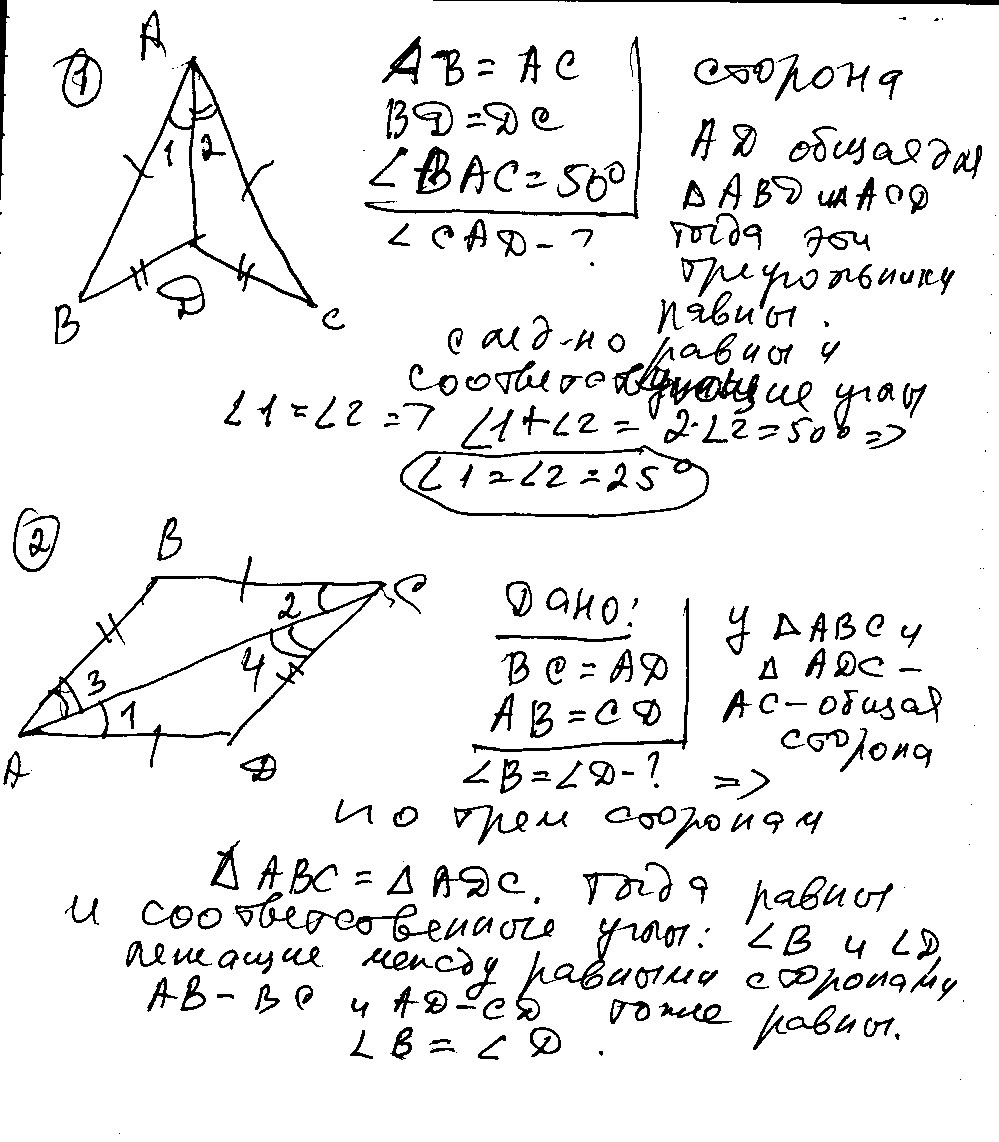 1
A
1 2
B D C
AB = AC
BD = DC
∠BAC = 50°
∠CAD - ?
сторона
AD общая для
△ABD и ACD
тогда эти
треугольники
равны.
след-но равны и
соответствующие углы
∠1 = ∠2 => ∠1 + ∠2 = 2·∠2 = 50° =>
∠1 = ∠2 = 25°
2
B C
2
4
3
1
A D
Дано:
BC = AD
AB = CD
∠B = ∠D - ?
У △ABC и
△ADC -
AC - общая
сторона
=>
по трем сторонам
△ABC = △ADC. Тогда равны
и соответственные углы: ∠B и ∠D,
лежащие между равными сторонами
AB - BC и AD - CD тоже равны.
∠B = ∠D.